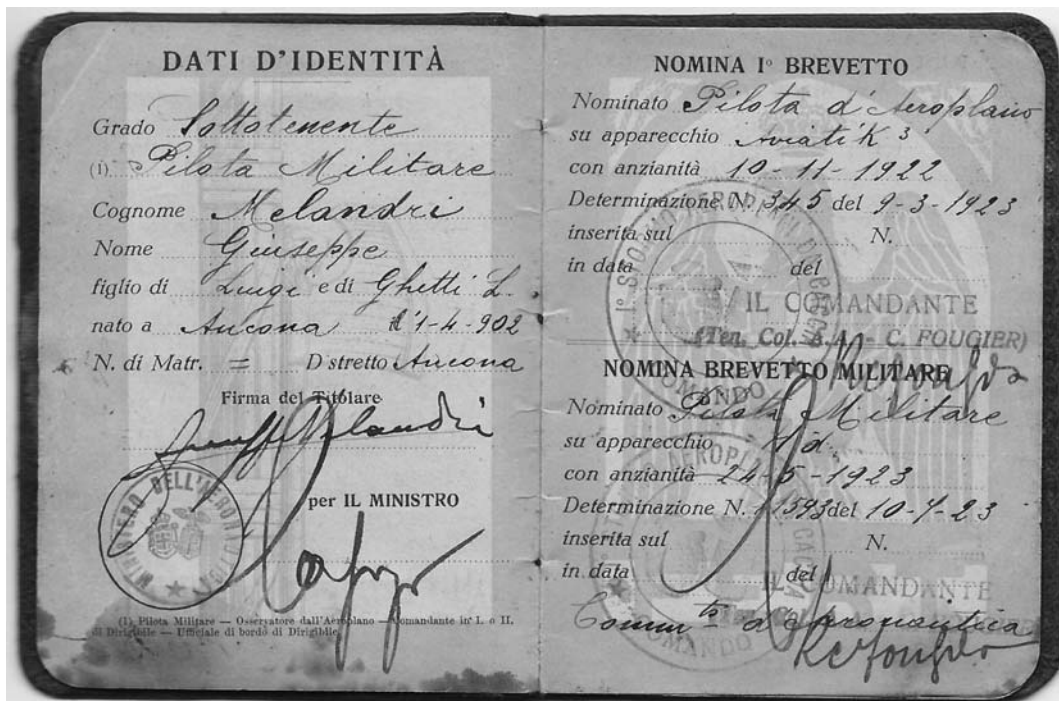 DATI D'IDENTITÀ
Grado Sottotenente
(1) Pilota Militare
Cognome Melandri
Nome Giuseppe
figlio di Luigi e di Ghetti L.
nato a Ancona 1-4-902
N. di Matr. = D stretto Ancona
Firma del Titolare
Giuseppe Melandri
MINISTERO DELL'AERONAUTICA
per IL MINISTRO
(1) Pilota Militare — Osservatore dall'Aeroplano — Comandante in I. o II.
di Dirigibile — Ufficiale di bordo di Dirigibile.
NOMINA I° BREVETTO
Nominato Pilota d'Aeroplano
su apparecchio Aviatik
con anzianità 10-11-1922
Determinazione N. 345 del 9-3-1923
inserita sul N.
in data del
IL COMANDANTE
(Ten. Col. A.A. - C. FOUGIER)
1° STORMO AEROPLANI DA CACCIA
COMANDO
NOMINA BREVETTO MILITARE
Nominato Pilota Militare
su apparecchio
con anzianità 24-5-1923
Determinazione N. 11593 del 10-7-23
inserita sul N.
in data del
IL COMANDANTE
Aeronautica